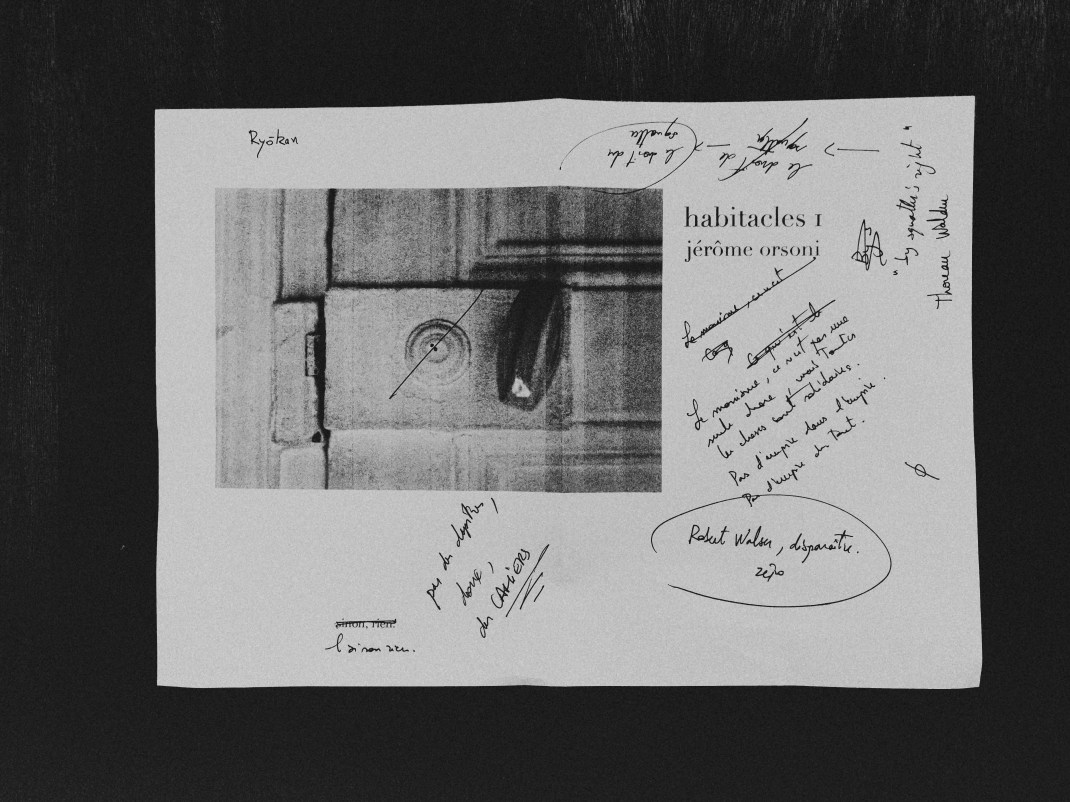 Ryōkan
le droit du
squatter
le droit de
squatter
"by squatter's right"
Thoreau Walden
habitacles I
jérôme orsoni
Le monisme, ce n'est
Ce qui est de
Le monisme, ce n'est pas une
seule chose, mais toutes
les choses sont solidaires.
Pas d'empire dans l'empire.
Pas d'empire du tout.
Robert Walser, disparaître.
zéro
pas des
donc,
des CAHIERS
sinon, rien.
sinon rien.